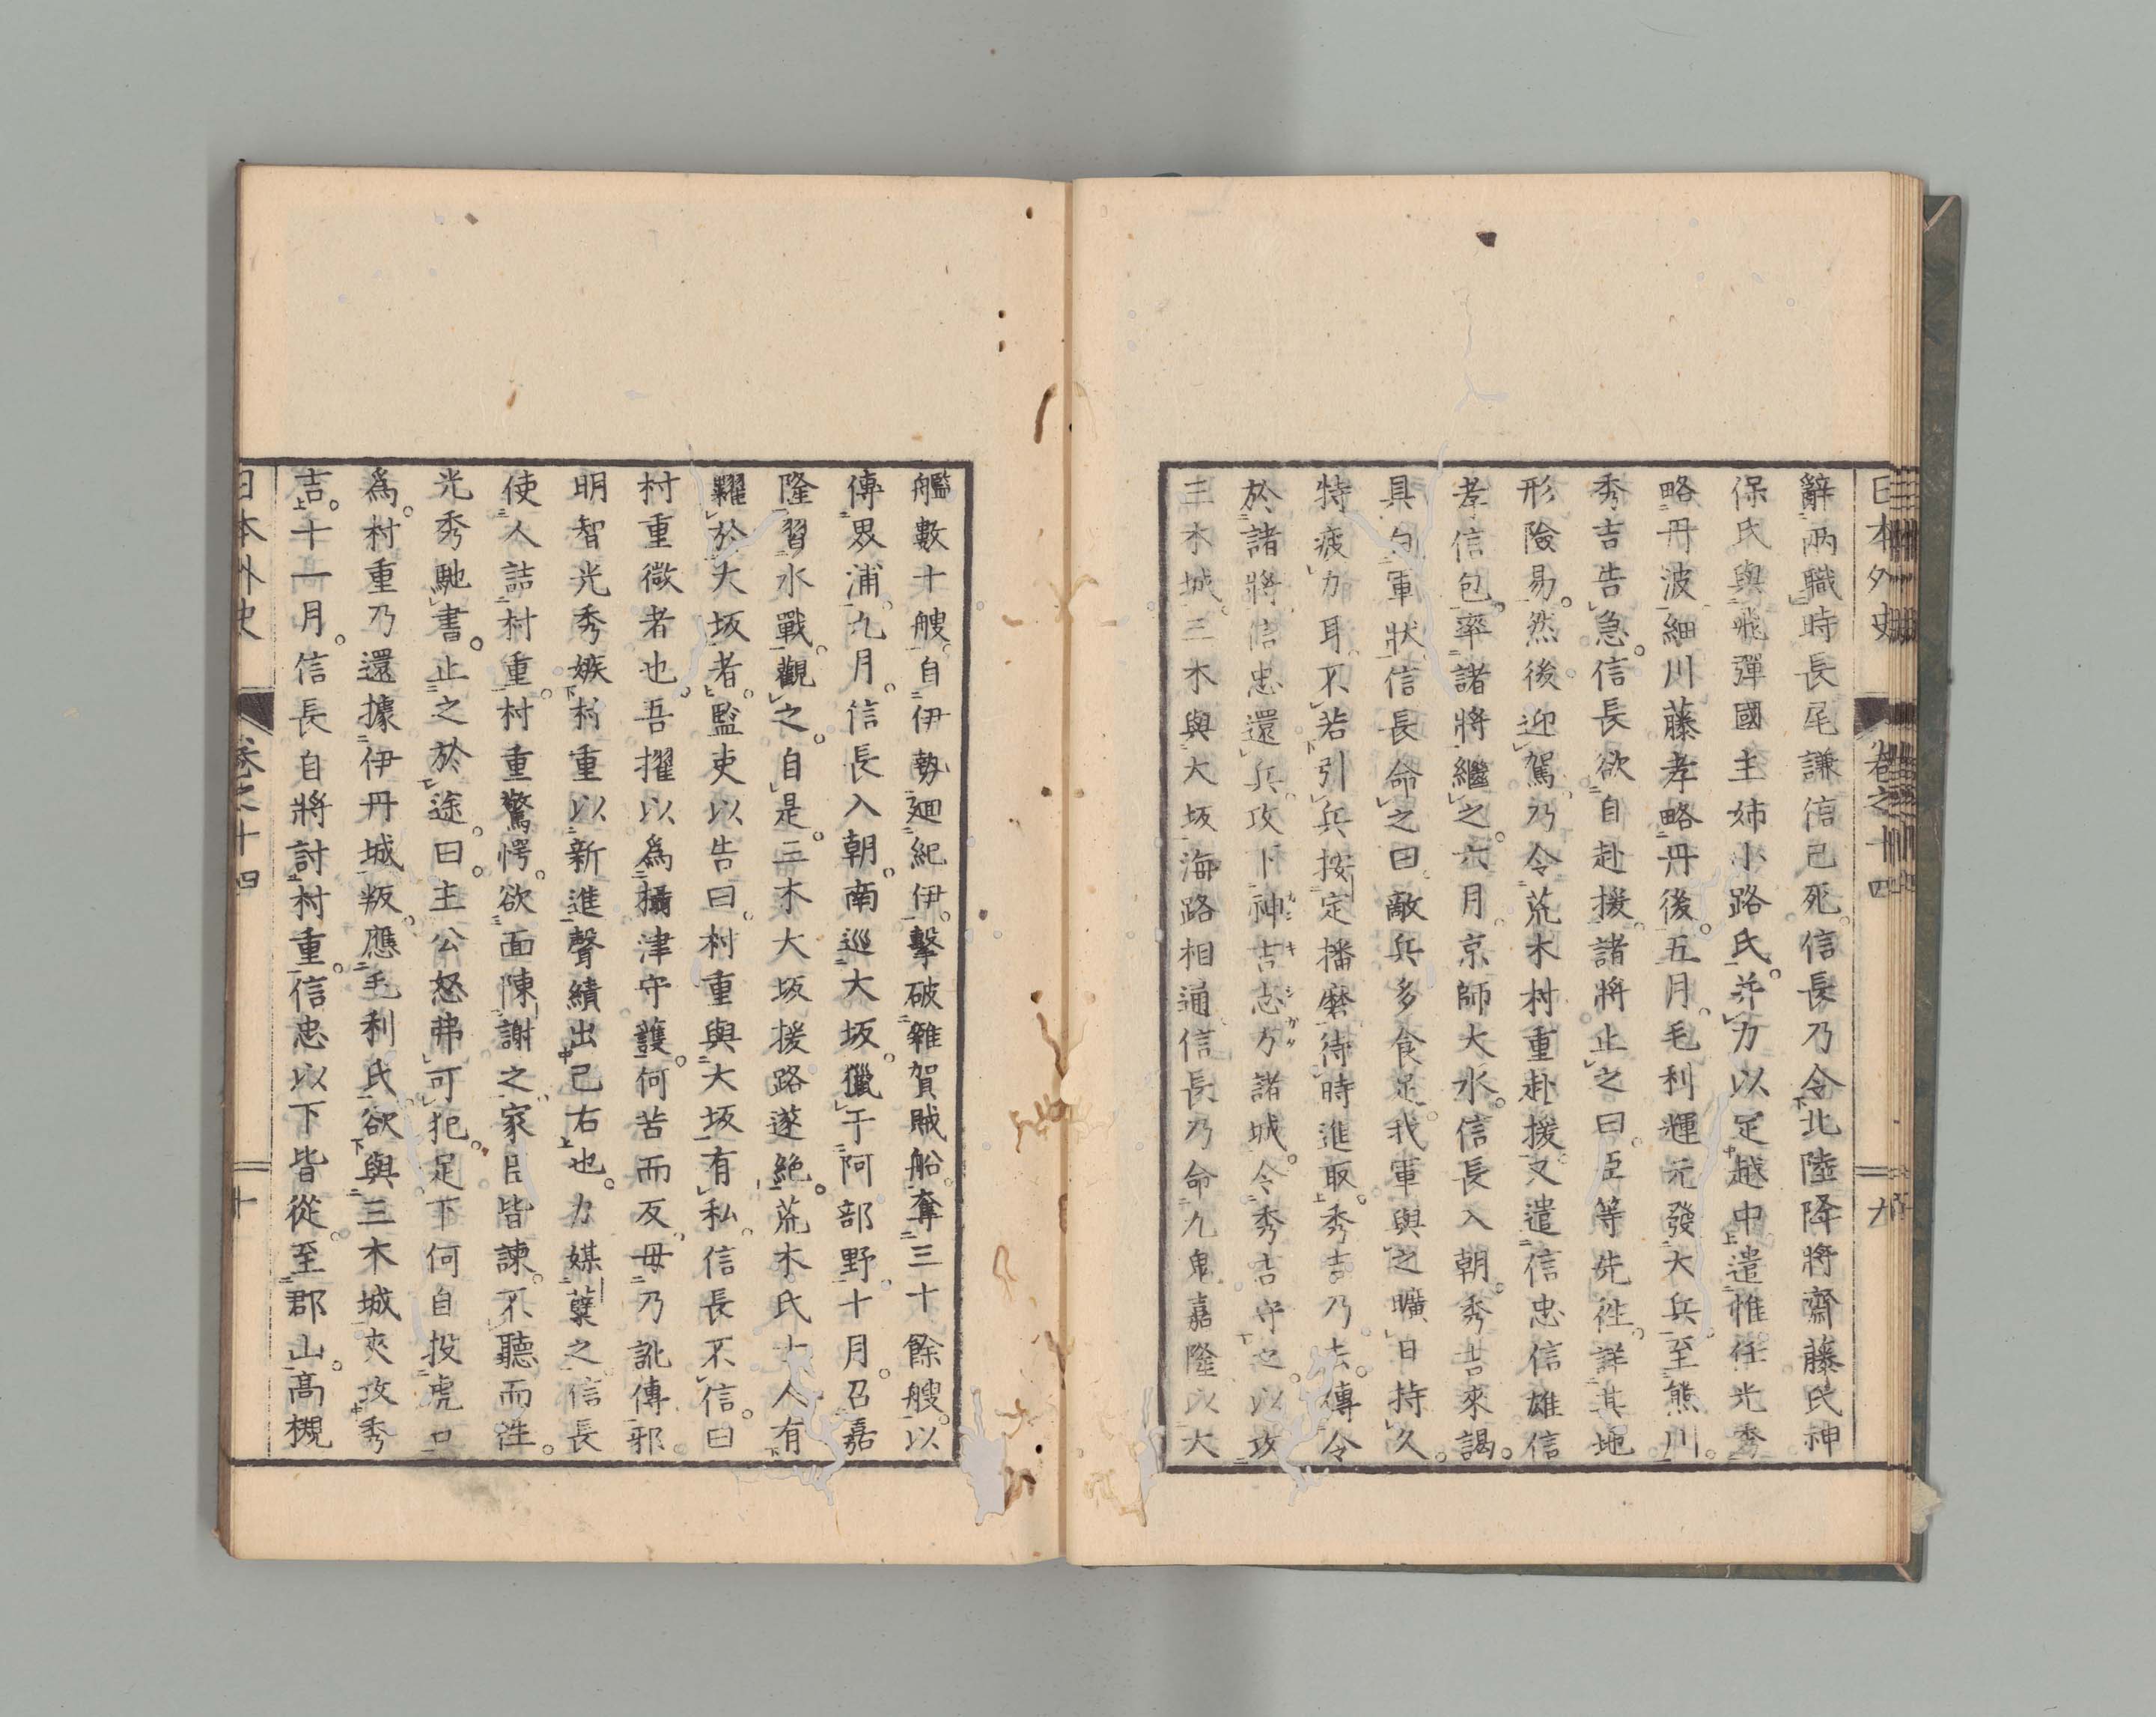 日本外史 卷之十四 九
辭兩職時長尾謙信已死信長乃令北陸降將齋藤氏神
保氏與飛彈國主姉小路氏并力以定越中遣惟任光秀
略丹波細川藤孝略丹後五月毛利輝元發大兵至熊川
秀吉告急信長欲自赴援諸將止之曰臣等先往詳其地
形險易然後迎駕乃令荒木村重赴援又遣信忠信雄信
孝信包率諸將繼之六月京師大水信長入朝秀吉來謁
具白軍狀信長命之曰敵兵多食足我軍與之曠日持久
特疲力耳不若引兵按定播磨待時進取秀吉乃去傳令
於諸將信忠還兵攻卜神吉志方諸城令秀吉守之以攻
三木城三木與大坂海路相通信長乃命九鬼嘉隆以大
艦數十艘自伊勢廻紀伊擊破雜賀賊船奪三十餘艘以
傳界浦九月信長入朝南巡大坂獵于阿部野十月召嘉
隆習水戰觀之自是三木大坂援路遂絶荒木氏士人有
糶於大坂者監吏以告曰村重與大坂有私信長不信曰
村重微者也吾擢以爲攝津守護何苦而反毋乃訛傳邪
明智光秀嫉村重以新進聲績出己右也力媒蘖之信長
使人詰村重村重驚愕欲面陳謝之家臣皆諫不聽而往
光秀馳書止之於途曰主公怒弗可犯足下何自投虎口
爲村重乃還據伊丹城叛應毛利氏欲與三木城夾攻秀
吉十一月信長自將討村重信忠以下皆從至郡山高槻
日本外史 卷之十四 十